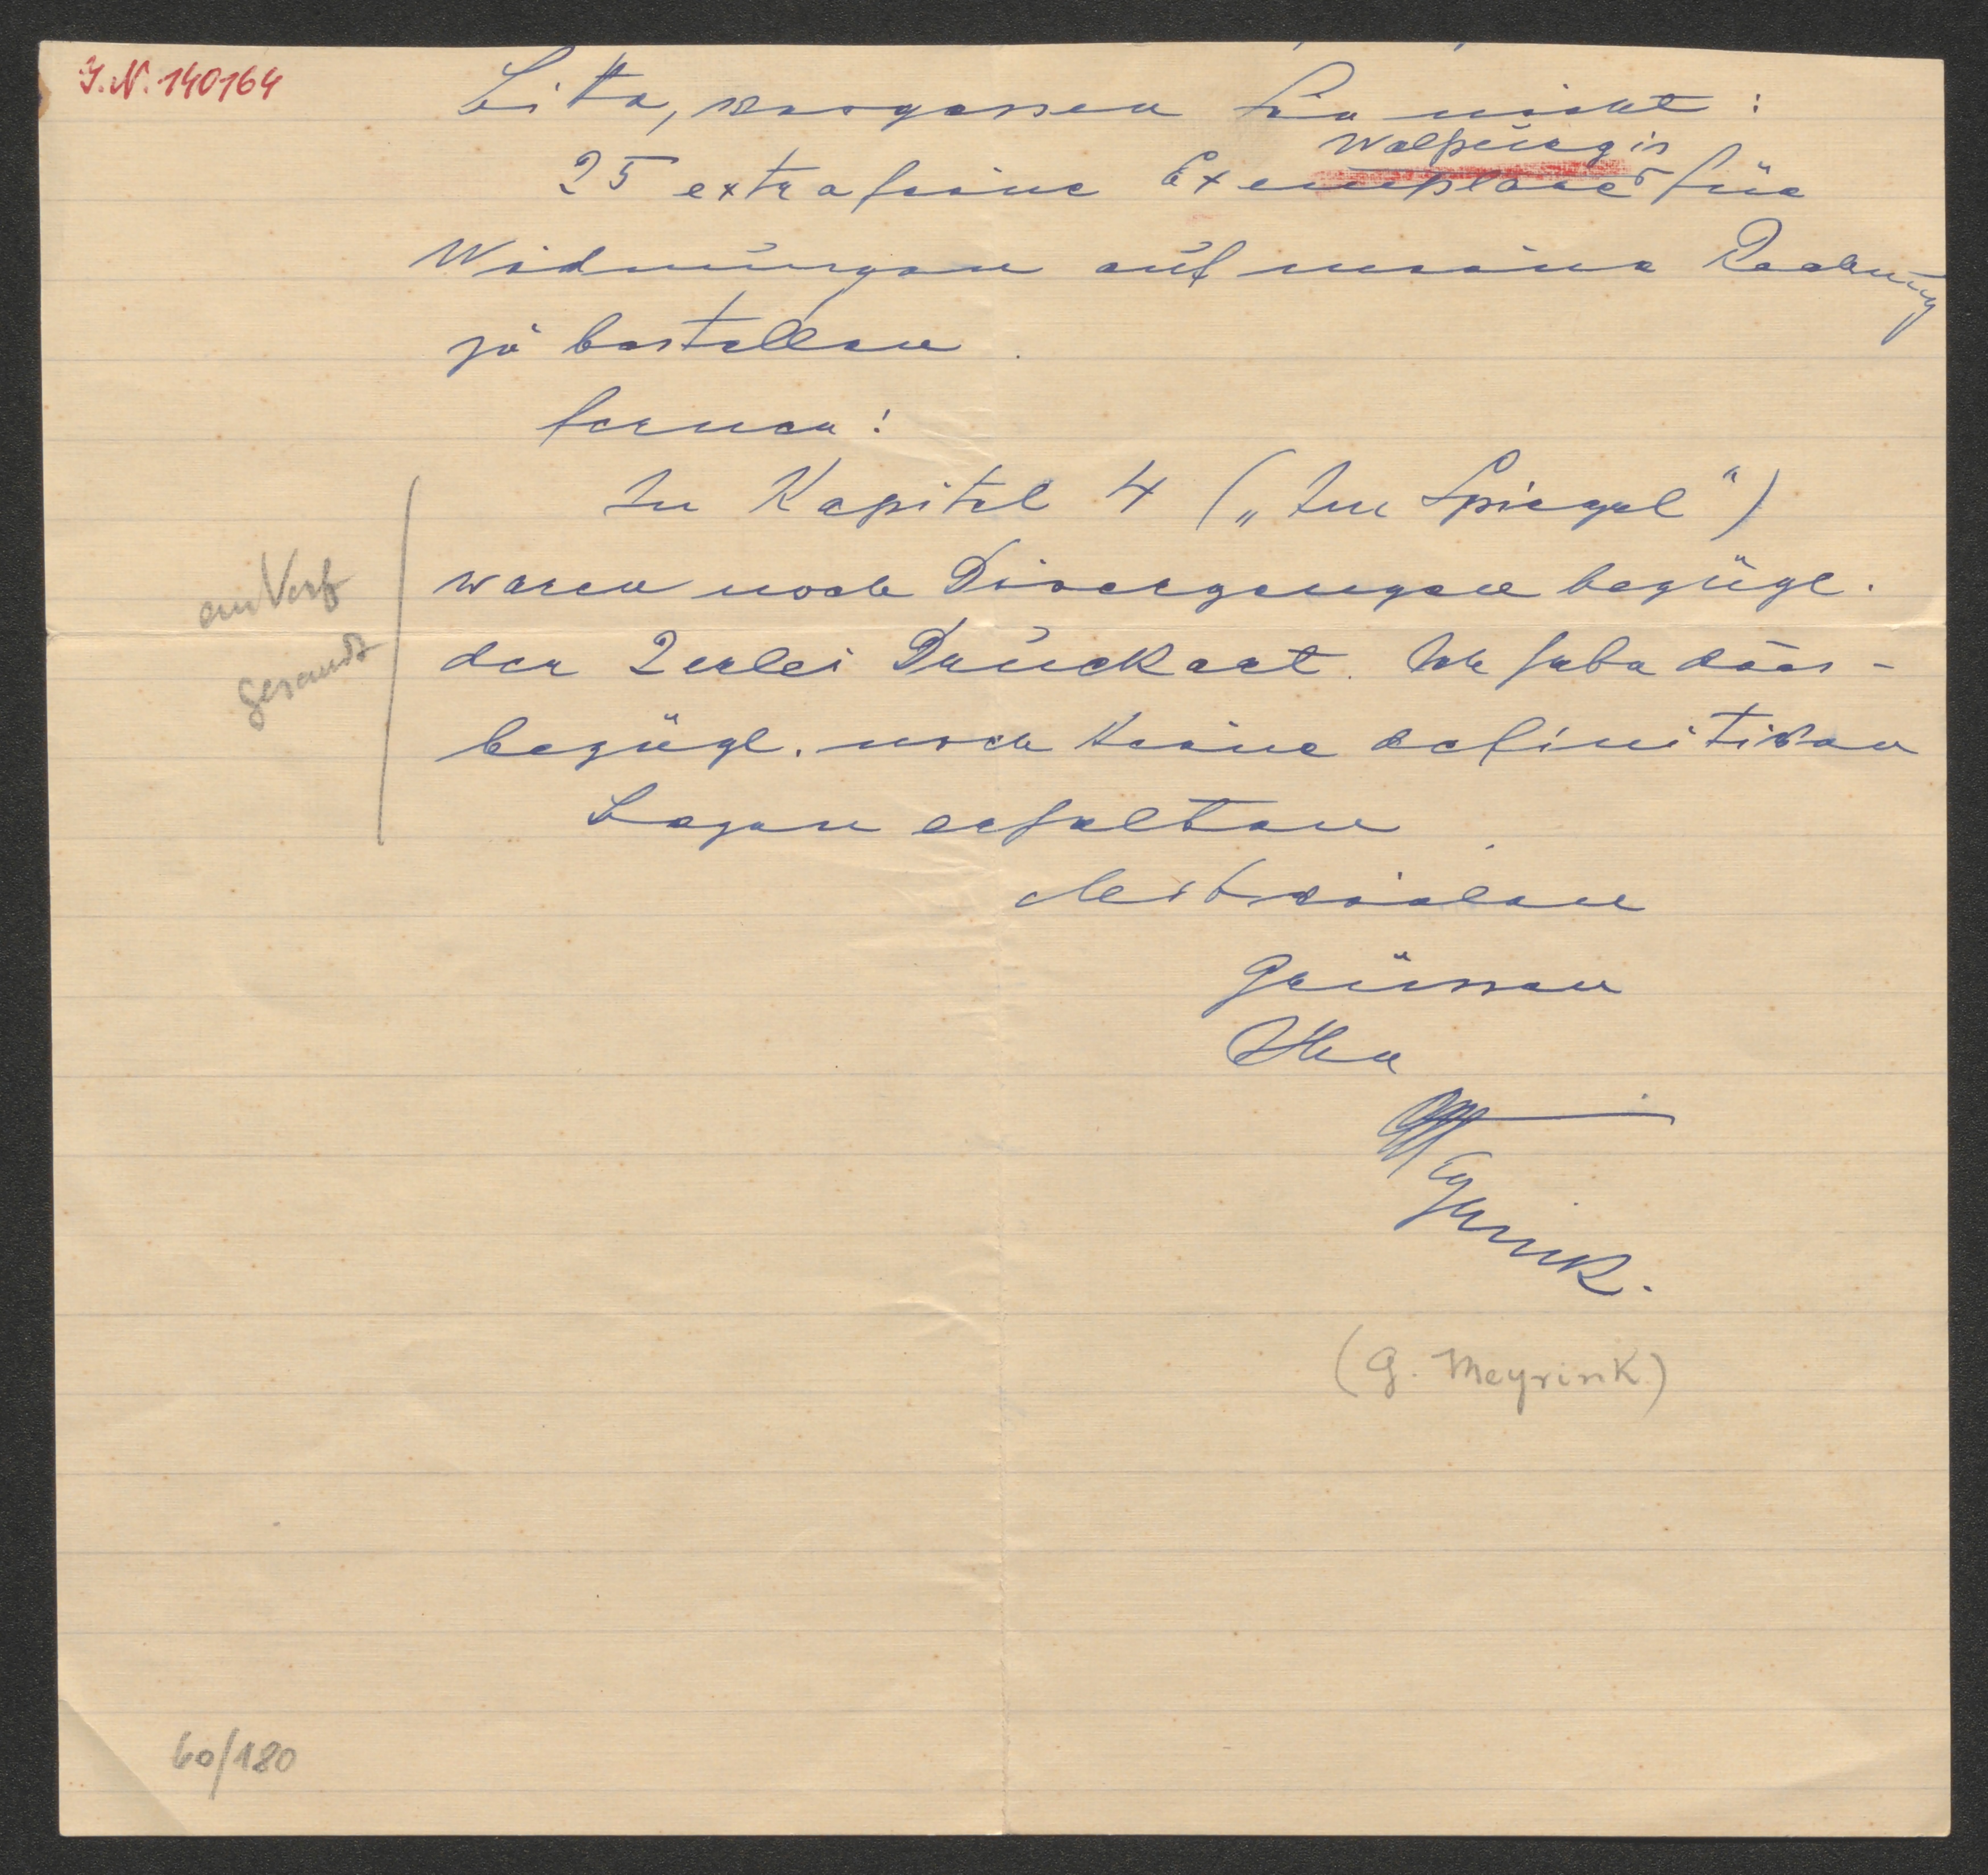 J.N. 140164
Bitte, vergessen Sie nicht:
Walpurgis
25 extrafeine Exemplare für
Widmungen auf meine Rechnung
zu bestellen.
ferner:
In Kapitel 4 („Im Spiegel“)
waren noch Divergenzen bezügl.
der 2erlei Druckart. Ich habe dies-
bezügl. noch keine definitiven
Bogen erhalten.
Mit vielen
Grüssen
Ihr
Meyrink.
an Verf
gesandt
(G. Meyrink)
60/180